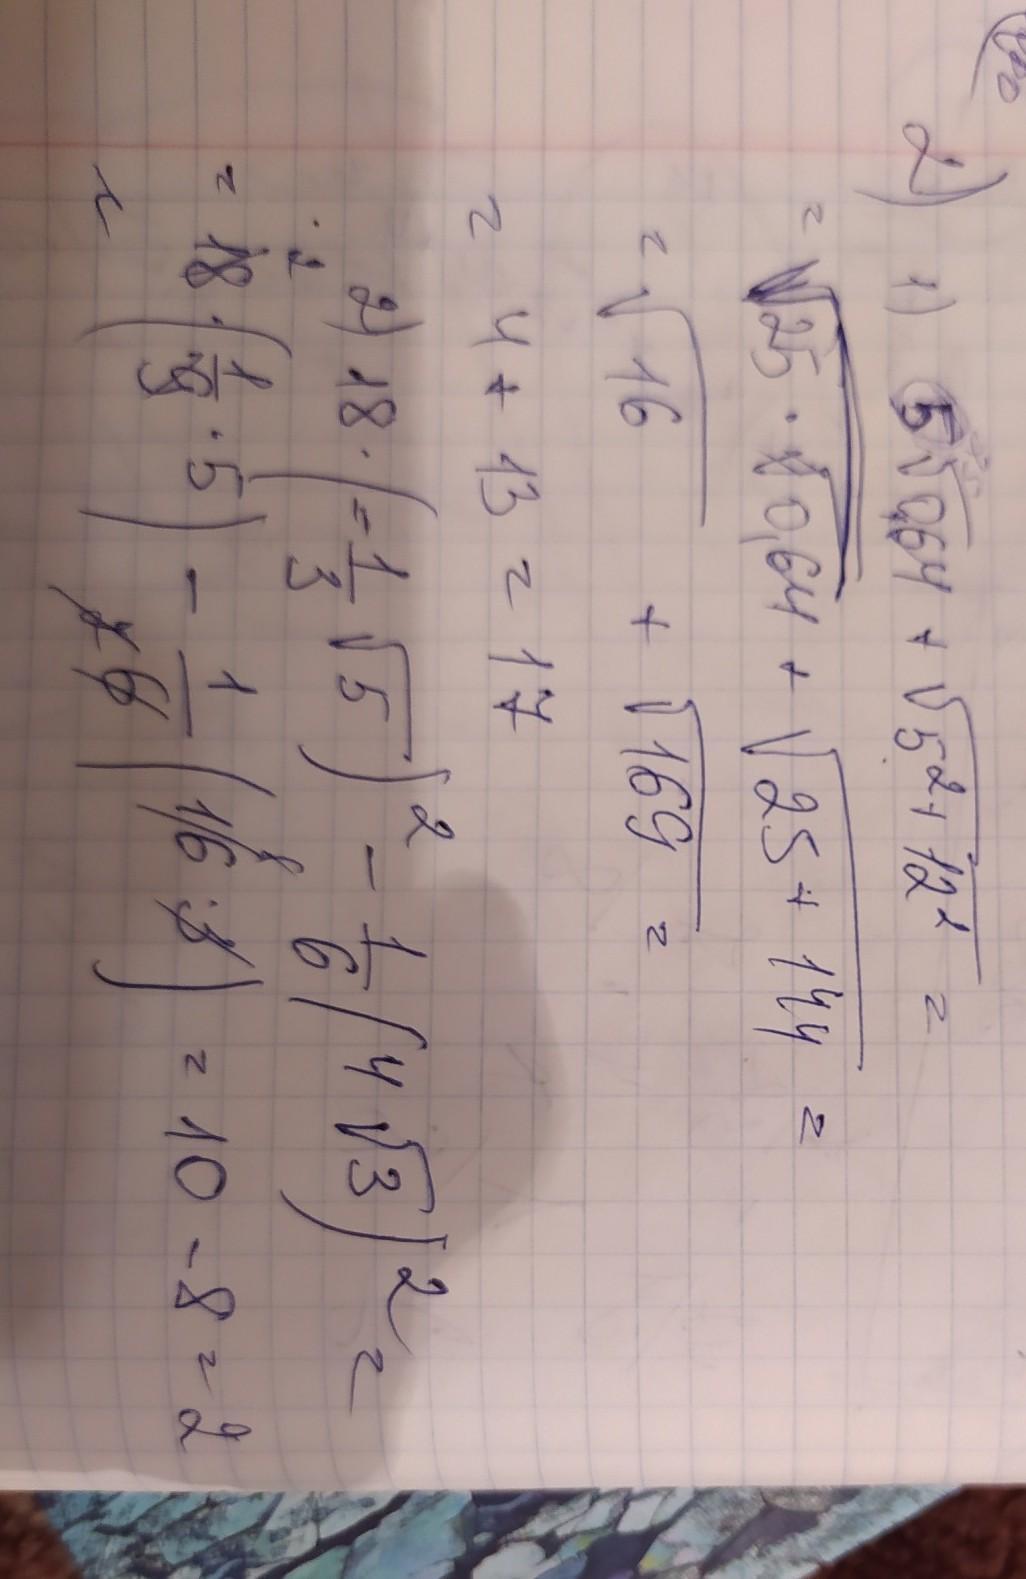 2) 1) 5√0,64 + √5² + 12² =
= √25 · 0,64 + √25 + 144 =
= √16 + √169 =
= 4 + 13 = 17
2) 18 · (-1/3 √5)² - 1/6 (4√3)² =
= 18 · (1/9 · 5) - 1/6 (16 · 3) = 10 - 8 = 2